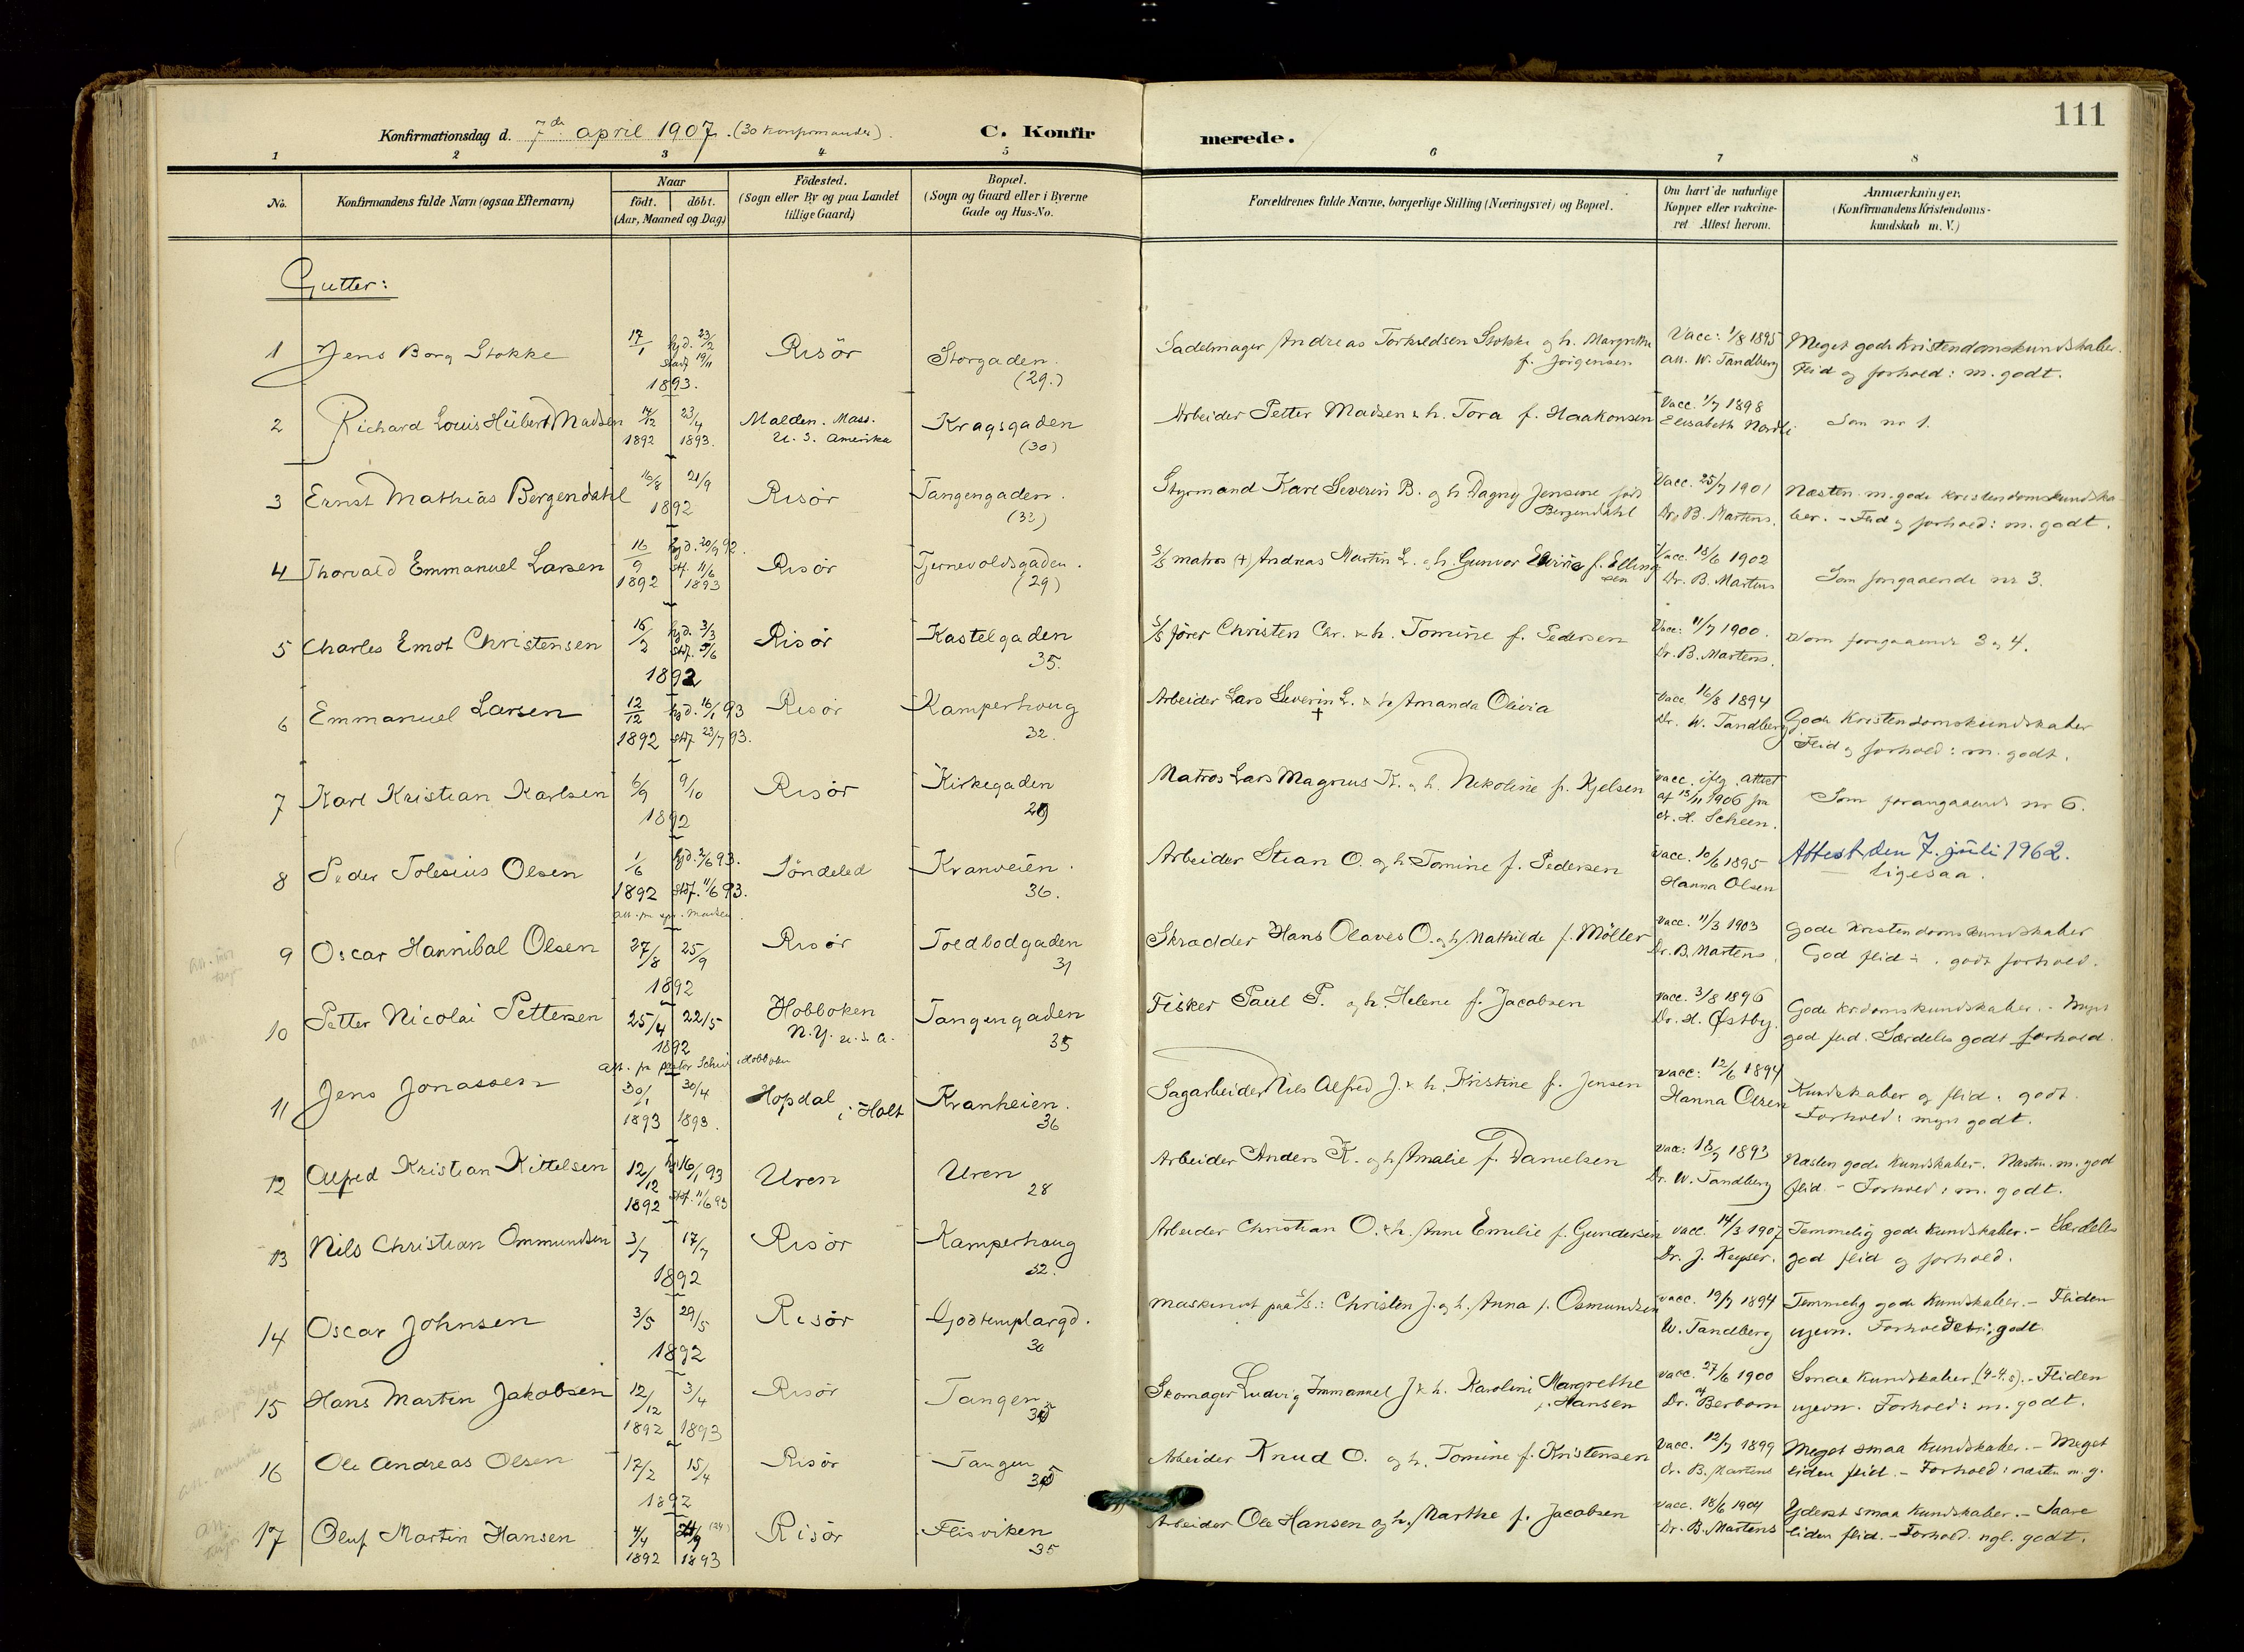 111
Konfirmationsdag d. 7de april 1907. (30 konfirmander).
C. Konfirmerede.
1 2 3 4 5 6 7 8
No.
Konfirmandens fulde Navn (ogsaa Efternavn)
Naar
födt. döbt.
(Aar, Maaned og Dag)
Födested.
(Sogn eller By og paa Landet
tillige Gaard)
Bopæl.
(Sogn og Gaard eller i Byerne
Gade og Hus-No.
Forældrenes fulde Navne, borgerlige Stilling (Næringsvei) og Bopæl.
Om havt de naturlige
Kopper eller vakcine-
ret Attest herom.
Anmærkninger,
(Konfirmandens Kristendoms-
kundskab m. V.)
Gutter:
1 Jens Borg Stokke 17/1 hjd. 23/2 stadf. 19/11 1893. Risör Storgaden. (29.)
Sadelmager Andreas Torkildsen Stokke og h. Margrethe f. Jörgensen
Vacc: 1/8 1895 att. W. Tandberg
Meget gode Kristendomskundskaber.
Flid og forhold: m. godt.
2 Richard Louis Hübert Madsen 14/12 1892 23/4 1893. Malden. Mass. U. S. Amerika Kragsgaden (30)
Arbeider Petter Madsen & h. Tora f. Haakonsen
Vacc. 1/7 1898 Elisabeth Nordli
Som nr 1.
3 Ernst Mathias Bergendahl 16/8 21/9 1892 Risör Tangengaden. (32)
Styrmand Karl Severin B. og h. Dagny Jensine föd Bergendahl
Vacc. 25/7 1901 Dr. B. Martens.
Næsten m. gode kristendomskundska-
ber. - Flid og forhold: m. godt.
4 Thorvald Emmanuel Larsen 16/9 1892 hjd. 20/9 92. stf. 11/6 1893 Risör Tjernevoldsgaden. (29)
S/S matros (+) Andreas Martin L. og h. Gunvor Elvine f. Ellingsen
Vacc. 18/6 1902 Dr. B. Martens
Som forgaaende nr 3.
5 Charles Emot Christensen 16/2 hjd. 3/3 stf. 5/6 1892 Risör Kastelgaden 35.
S/S förer Christen Chr. & h. Tomine f. Pedersen
Vacc: 11/7 1900. Dr. B. Martens.
Som forgaaende 3 og 4.
6 Emmanuel Larsen 12/12 1892 hjd. 16/1 93 stf. 23/7 93. Risör Kamperhoug 32.
Arbeider Lars Severin L. + & h. Amanda Olivia
Vacc. 16/8 1894 Dr. W. Tandberg
Gode Kristendomskundskaber
Flid og forhold: m. godt.
7 Karl Kristian Karlsen 6/9 9/10 1892 Risör Kirkegaden 29
Matros Lars Magnus K. og h. Nikoline f. Kjelsen
Vacc. ifølg. attest af 13/11 1906 fra dr. H. Scheen.
Som forangaaende nr 6.
8 Peder Tolesius Olsen 1/6 1892 hjd. 2/6 93. stdf. 11/6 93. Söndeled Kranveien. 36.
Arbeider Stian O. og h Tomine f. Pedersen
Vacc. 10/6 1895 Hanna Olsen
Attest den 7. juli 1962.
Ligesaa.
9 Oscar Hannibal Olsen 27/8 25/9 1892 Risör Toldbodgaden 31
Skrædder Hans Olaves O. og h Mathilde f. Möller
Vacc. 11/3 1903 Dr. B. Martens.
Gode Kristendomskundskaber
God flid. godt forhold.
10 Petter Nicolai Pettersen 25/4 22/5 1892 Hobboken N.Y. U.S.A. Tangengaden 35
Fisker Paul P. og h. Helene f. Jacobsen
Vacc. 3/8 1896 Dr. H. Østby.
Gode krdomskundskaber. - Myn
god flid. Særdeles godt forhold.
11 Jens Jonassen 30/1 1893 30/4 1893. Hopdal i Holt Kranheien. 36
Sagarbeider Nils Alfred J. & h. Kristine f. Jensen
Vacc: 12/6 1894 Hanna Olsen
Kundskaber og flid: godt.
Forhold: myn godt.
12 Alfred Kristian Kittelsen 12/12 1892 hj 16/1 93 stdf. 11/6 93 Uren Uren 28
Arbeider Anders K. og h Amalie f. Danielsen
Vacc: 18/7 1893 Dr. W. Tandberg
Næsten gode Kundskaber. Næsten m. god
flid. - Forhold: m. godt.
13 Nils Christian Ommundsen 3/7 17/7 1892 Risör Kamperhaug 32.
Arbeider Christian O. & h. Anne Emilie f. Gundersen
Vacc. 14/3 1907 Dr. J. Keyser.
Temmelig gode Kundskaber. - Særdeles
god flid og forhold.
14 Oscar Johnsen 3/5 29/5 1892 Risör Godtemplargd. 30
Maskinist paa S/S.: Christen J. og h. Anna f. Osmundsen
Vacc. 19/7 1894 W. Tandberg
Temmelig gode Kundskaber. - Fliden
ujevn. Forholdet: godt.
15 Hans Martin Jakobsen 12/12 1892 3/4 1893 Risör Tangen
Skomager Ludvig Immanuel J & h. Karoline Margrethe f. Hansen
Vacc. 27/6 1900 Dr. Berbom
Smaa Kundskaber (4-4.5). - Fliden
ujevn. Forhold: m. godt.
16 Ole Andreas Olsen 17/2 15/4 1892 Risör Tangen
Arbeider Knud O. og h. Tomine f. Kristensen
Vacc. 12/7 1899 Dr. B. Martens
Meget smaa Kundskaber. - Meget
liden flid. - Forhold: næsten m. g.
17 Oluf Martin Hansen 4/4 1892 (24) 1893 Risör Flisviken 35
Arbeider Ole Hansen og h. Marthe f. Jacobsen
Vacc. 18/6 1904 Dr. B. Martens
Yderst smaa Kundskaber. - Saare
liden flid. - Forhold. ngl. godt.